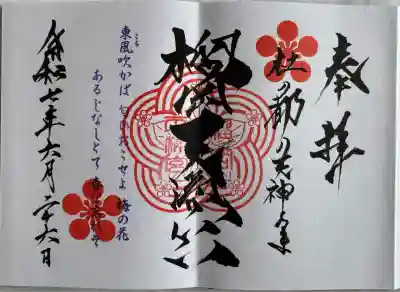 奉拝
杜の都の天神さま
榴岡天満宮
東風吹かば 匂ひおこせよ 梅の花
こち
あるじなしとて 春な忘れそ
令和七年六月二十六日